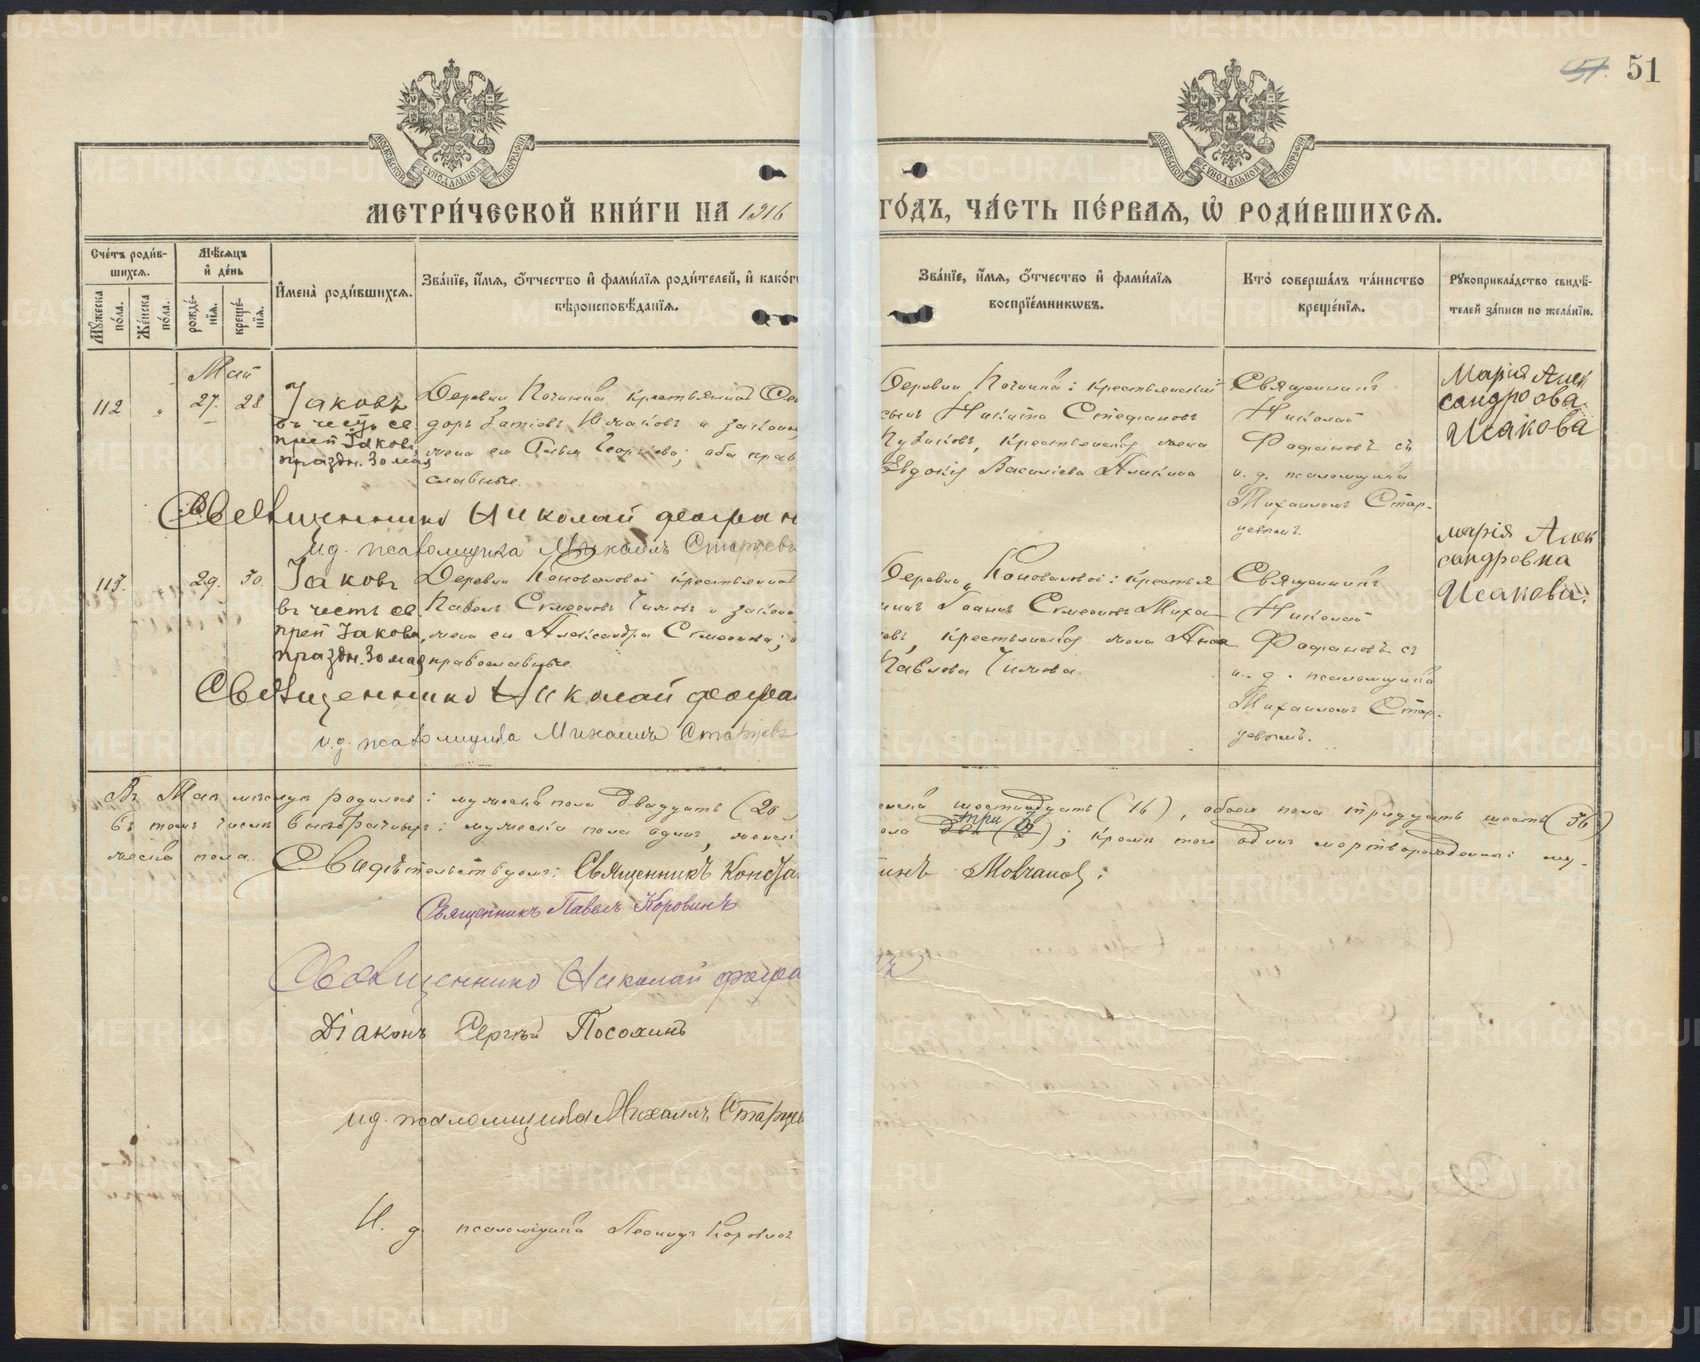 51
МОСКОВСКОЙ СУНОДАЛЬНОЙ ТИПОГРАФІИ
МОСКОВСКОЙ СУНОДАЛЬНОЙ ТИПОГРАФІИ
МЕТРИ́ЧЕСКОЙ КНИ́ГИ НА 1916
ГО́ДЪ, ЧА́СТЬ ПЕ́РВАЯ, Ѿ РОДИ́ВШИХСЯ.
Сче́тъ роди́в-
шихся.
Мѣ́сяцъ
и҆ де́нь
Мꙋ́жеска
по́ла.
Же́нска
по́ла.
рожде́-
нїя.
креще́-
нїя.
И҆мена̀ роди́вшихся.
Зва́нїе, и҆́мя, ѻ҆́тчество и҆ фамн́лїя роди́телей, и҆ како́г
вѣроисповѣ́данїя.
Зва́нїе, и҆́мя, ѻ҆́тчество и҆ фами́лїя
воспрїе́мникѡвъ.
Кто̀ соверша́лъ та́инство
креще́нїя.
Рꙋкоприкла́дство свидѣ́-
телей за́писи по жела́нїю.
Май
112 27. 28
Іаковъ
въ честь св.
преп Іакова
праздн. 30 мая
Деревни Починка крестьянинъ
и законн
жена его Георгіева; оба прав
славные.
Деревни Починка: крестьянскій
сынъ Никита Стефановъ
крестьянская жена
Евдокія Василіева Аликина
Священникъ
Николай
Фофановъ съ
и. д. псаломщика
Михаиломъ Стар-
цевымъ.
Марія Алек
сандровa
Исакова
Священникъ Николай Фофан
Ид. псаломщика Михаилъ Старцевъ
113. 29. 30.
Іаковъ
въ честь св
преп Іакова,
праздн. 30 мая
Деревни Коноваловой крестьянинъ
Павелъ Симеоновъ и законн
жена его Александра Симеонова;
православные.
Деревни Коноваловой: крестья
нинъ Іоаннъ Симеоновъ Миха
евъ, крестьянская жена Анна
Павлова
Священникъ
Николай
Фофановъ съ
и. д. псаломщика
Михаиломъ Стар-
цевымъ.
марія Алек
сандровна
Исакова.
Священникъ Николай Фофан
и.д. псаломщика Михаилъ Старцевъ
Въ Маѣ мѣсяцѣ родилось: мужеска пола двадцать (20)
женска шестнадцать (16), обоего пола тридцать шесть (36)
въ томъ числѣ внѣбрачныхъ: мужеска пола одинъ, женск
пола три; кромѣ того одинъ мертворожденный му-
жеска пола.
Свидѣтельствуемъ: Священникъ Конста
тинъ Мовчанов:
Священникъ Павелъ Коровинъ
Священникъ Николай Фофа
Діаконъ Сергѣй Посохинъ
Ид. псаломщика Михаилъ Старцев
И. д. псаломщика Леонидъ Коровинъ
METRIKI.GASO-URAL.RU